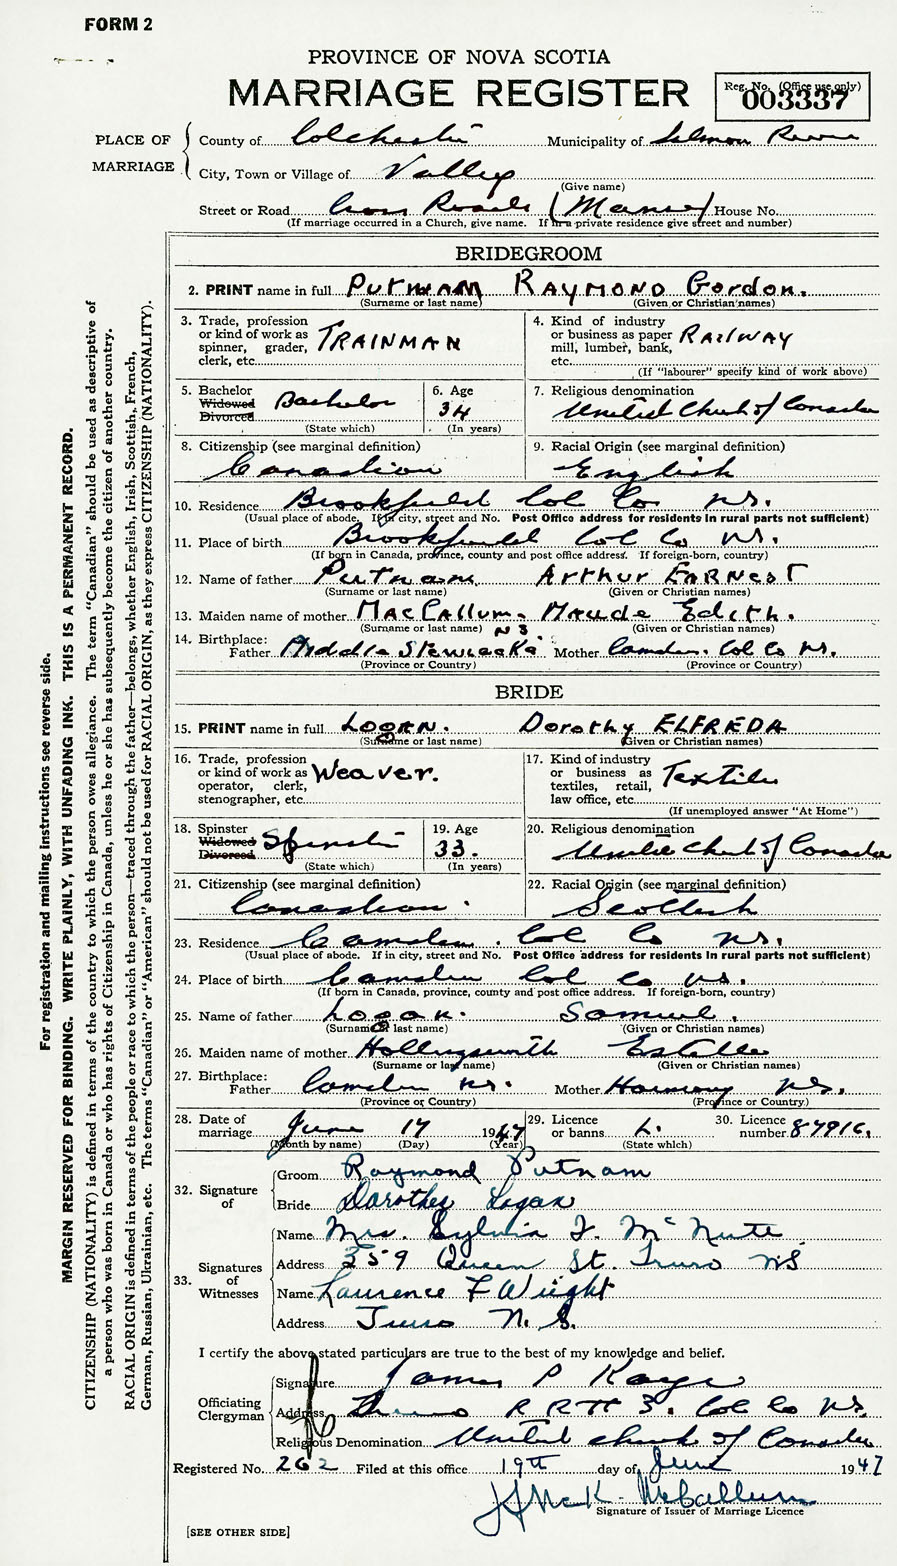 FORM 2
PROVINCE OF NOVA SCOTIA
MARRIAGE REGISTER
Reg. No. (Office use only)
003337
PLACE OF MARRIAGE
County of Colchester Municipality of Salmon River
City, Town or Village of Valley
(Give name)
Street or Road Cross Roads (Manse) House No.
(If marriage occurred in a Church, give name. If in a private residence give street and number)
BRIDEGROOM
2. PRINT name in full PUTNAM RAYMOND Gordon.
(Surname or last name) (Given or Christian names)
3. Trade, profession or kind of work as spinner, grader, clerk, etc. TRAINMAN
4. Kind of industry or business as paper mill, lumber, bank, etc. RAILWAY
(If "labourer" specify kind of work above)
5. Bachelor Widowed Divorced Bachelor
(State which)
6. Age 34
(In years)
7. Religious denomination United Church of Canada
8. Citizenship (see marginal definition) Canadian
9. Racial Origin (see marginal definition) English
10. Residence Brookfield Col Co NS.
(Usual place of abode. If in city, street and No. Post Office address for residents in rural parts not sufficient)
11. Place of birth Brookfield Col Co NS.
(If born in Canada, province, county and post office address. If foreign-born, country)
12. Name of father Putnam ARTHUR EARNEST
(Surname or last name) (Given or Christian names)
13. Maiden name of mother MACCALLUM. MAUDE EDITH.
(Surname or last name) (Given or Christian names)
14. Birthplace: Father Middle Stewiacke NS. Mother Camden. Col Co NS.
(Province or Country) (Province or Country)
BRIDE
15. PRINT name in full LOGAN. Dorothy ELFREDA
(Surname or last name) (Given or Christian names)
16. Trade, profession or kind of work as operator, clerk, stenographer, etc. Weaver.
17. Kind of industry or business as textiles, retail, law office, etc. Textile
(If unemployed answer "At Home")
18. Spinster Widowed Divorced Spinster
(State which)
19. Age 33.
(In years)
20. Religious denomination United Church of Canada
21. Citizenship (see marginal definition) Canadian.
22. Racial Origin (see marginal definition) Scottish
23. Residence Camden. Col Co NS.
(Usual place of abode. If in city, street and No. Post Office address for residents in rural parts not sufficient)
24. Place of birth Camden Col Co NS.
(If born in Canada, province, county and post office address. If foreign-born, country)
25. Name of father Logan. Samuel.
(Surname or last name) (Given or Christian names)
26. Maiden name of mother Hollingsworth Estella
(Surname or last name) (Given or Christian names)
27. Birthplace: Father Camden NS. Mother Harmony NS.
(Province or Country) (Province or Country.)
28. Date of marriage June 17 1947
(Month by name) (Day) (Year)
29. Licence or banns L.
(State which)
30. Licence number 87916.
32. Signature of
Groom Raymond Putnam
Bride Dorothy Logan
33. Signatures of Witnesses
Name Mrs. Sylvia F. McNutt.
Address 359 Queen St. Truro NS
Name Laurence F Wright
Address Truro N.S.
I certify the above stated particulars are true to the best of my knowledge and belief.
Officiating Clergyman
Signature James P Kaye
Address Truro R R # 3. Col Co NS.
Religious Denomination United church of Canada
Registered No. 262 Filed at this office 19th day of June 1947
McCallum
Signature of Issuer of Marriage Licence
[SEE OTHER SIDE]
For registration and mailing instructions see reverse side.
MARGIN RESERVED FOR BINDING. WRITE PLAINLY, WITH UNFADING INK. THIS IS A PERMANENT RECORD.
CITIZENSHIP (NATIONALITY) is defined in terms of the country to which the person owes allegiance. The term "Canadian" should be used as descriptive of
a person who was born in Canada or who has rights of Citizenship in Canada, unless he or she has subsequently become the citizen of another country.
RACIAL ORIGIN is defined in terms of the people or race to which the person—traced through the father—belongs, whether English, Irish, Scottish, French,
German, Russian, Ukrainian, etc. The terms "Canadian" or "American" should not be used for RACIAL ORIGIN, as they express CITIZENSHIP (NATIONALITY).